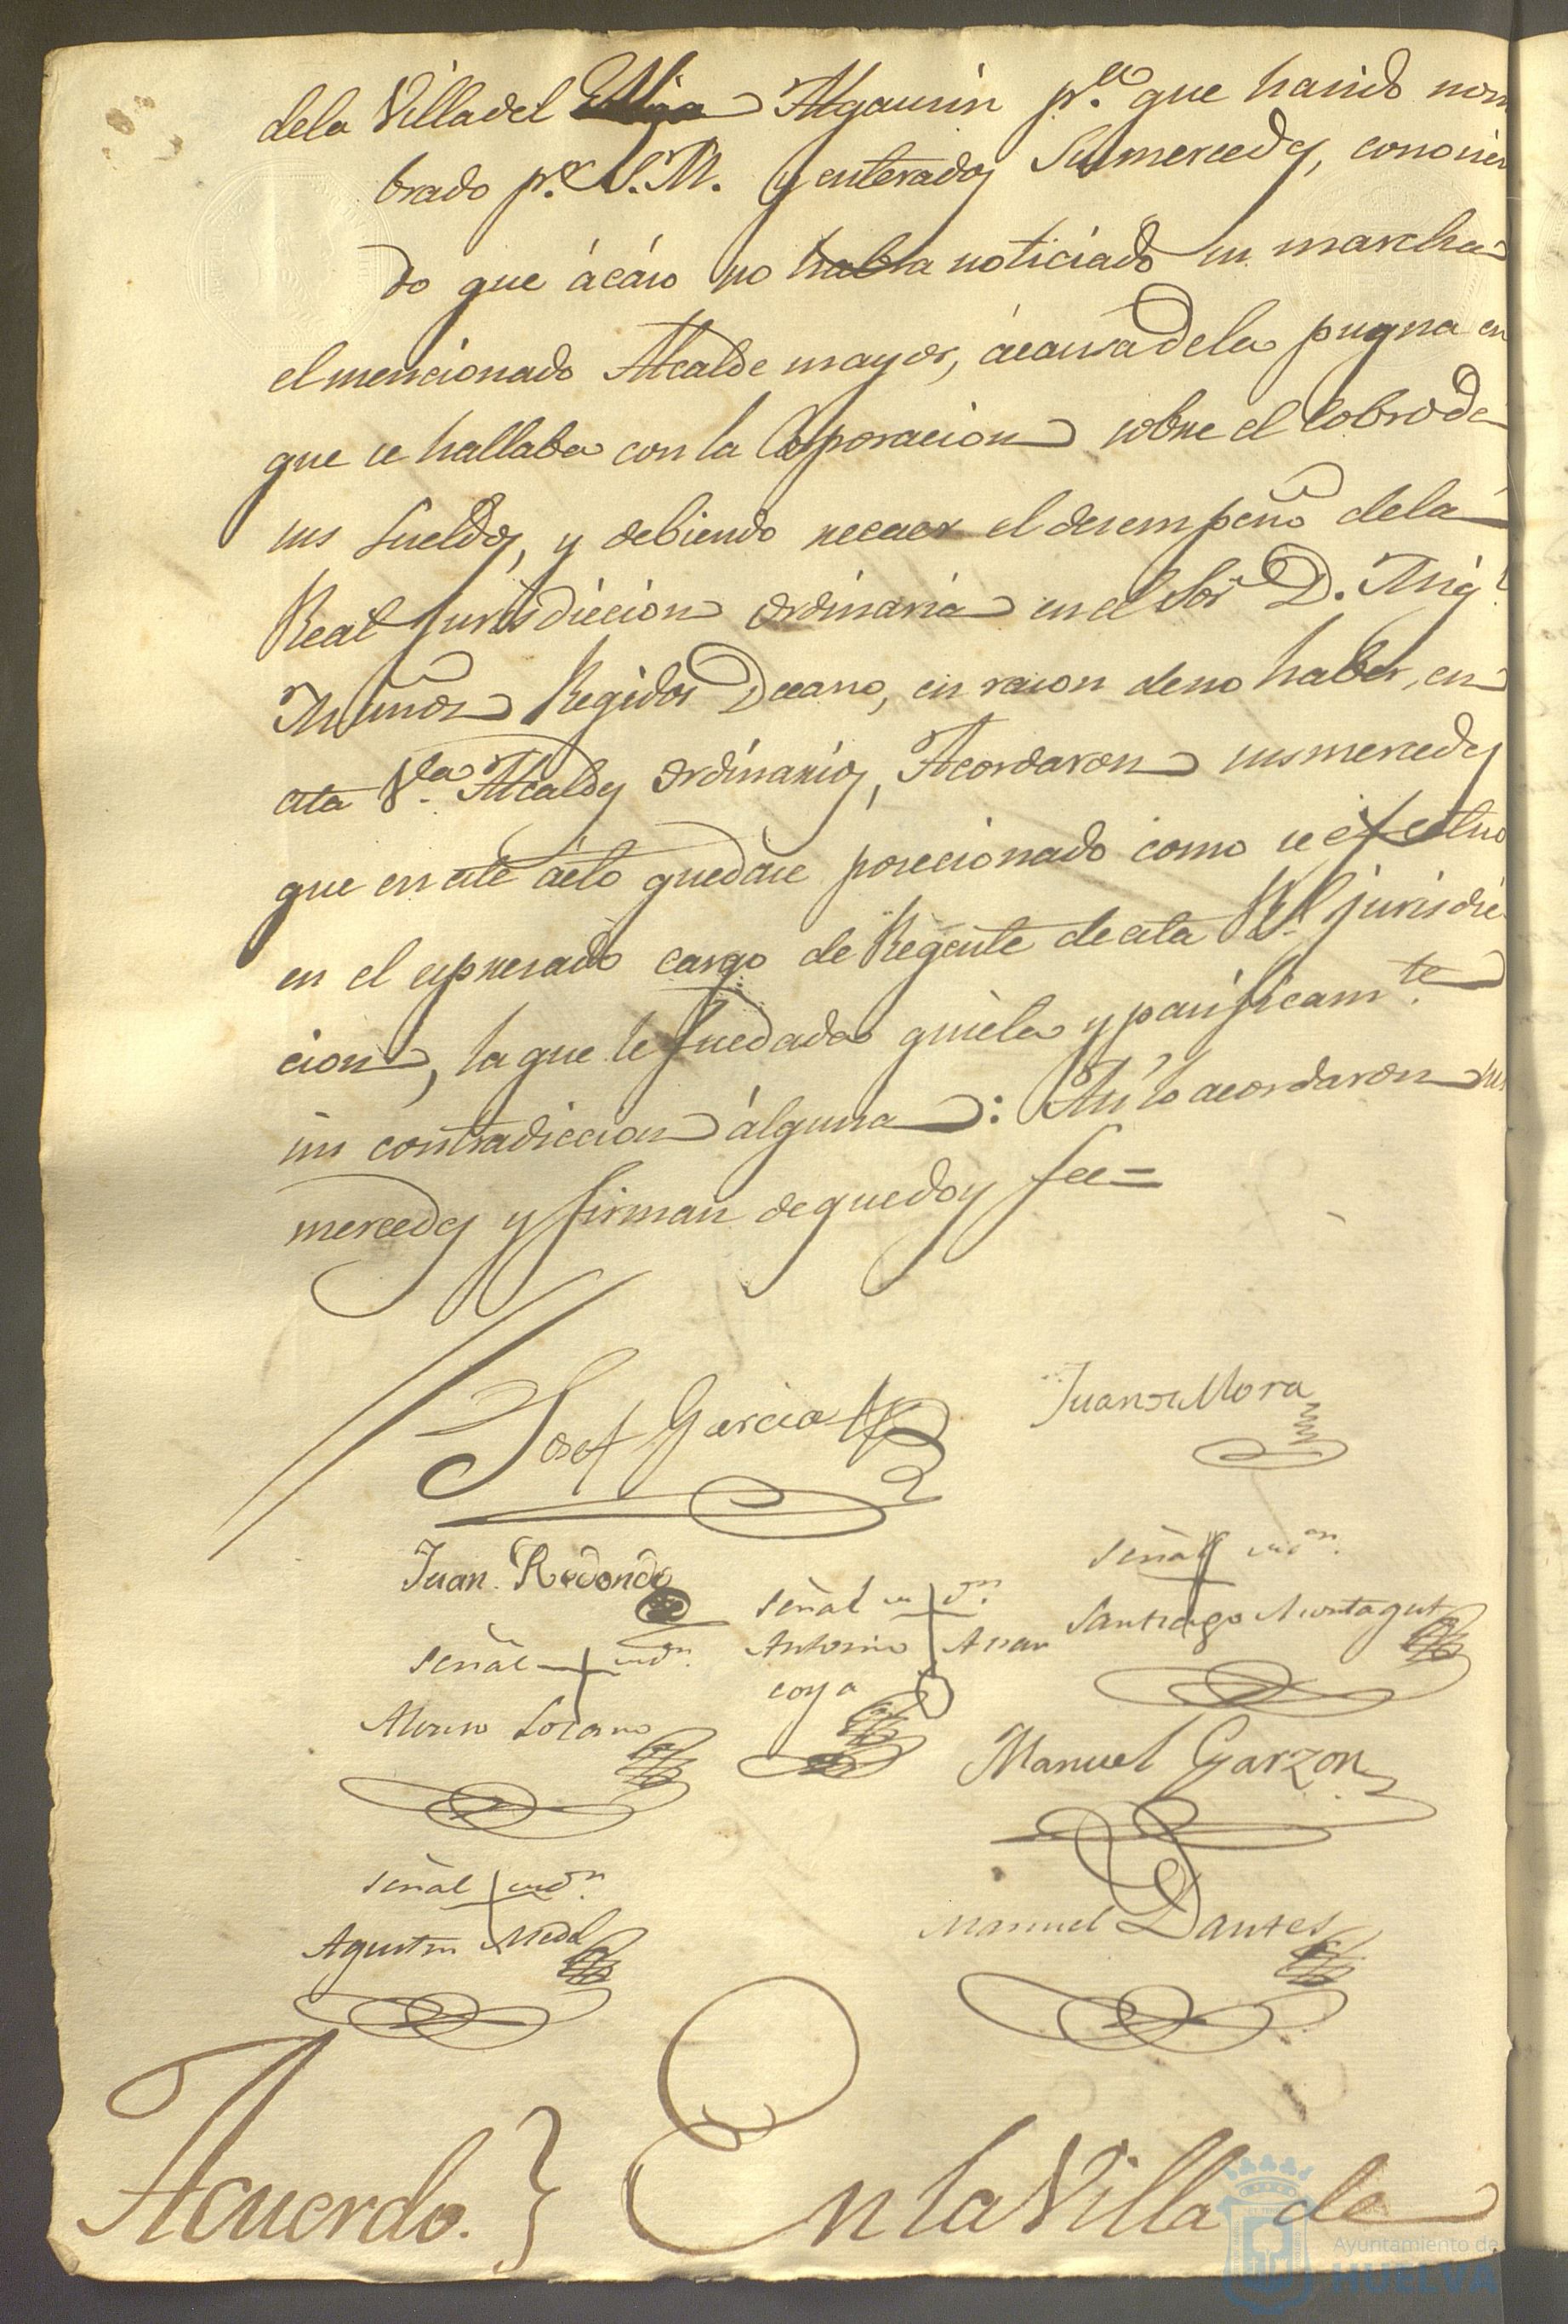 dela Villadel Algaurin p.ª que hasido nom
brado p.r S.M. y enterados Susmercedes, conosien
do que ácáso no habia noticiado su marcha
el mencionado Alcalde mayor, ácausa dela pugna en
que se hallaba con la Corporacion sobre el cobro de
sus Sueldos, y debiendo recaer el desempeño dela
Real Jurisdiccion Ordinaria en el Sor D. Mig.l
Muñoz Regidor Decano, en razon deno haber, en
esta V.a Alcaldes ordinarios, Acordaron susmercedes
que en este ácto quedase posecionado como se efectuo
en el espresado cargo de Regente de esta R.l jurisdic
cion, la que le fuedada quieta y pacificam.te
sin contradiccion álguna: Asi lo acordaron sus
mercedes y firman de que doy fee=
Josef Garcia
Juan de Mora
Juan Redondo
Señal + de
Alonso Lozano
Señal + de
Antonio Aran
coya
Señal + de
Santiago Montagut
Manuel Garzon
Señal + de
Agustin
Manuel Dantes
Acuerdo. } En la Villa de
Ayuntamiento de
HUELVA